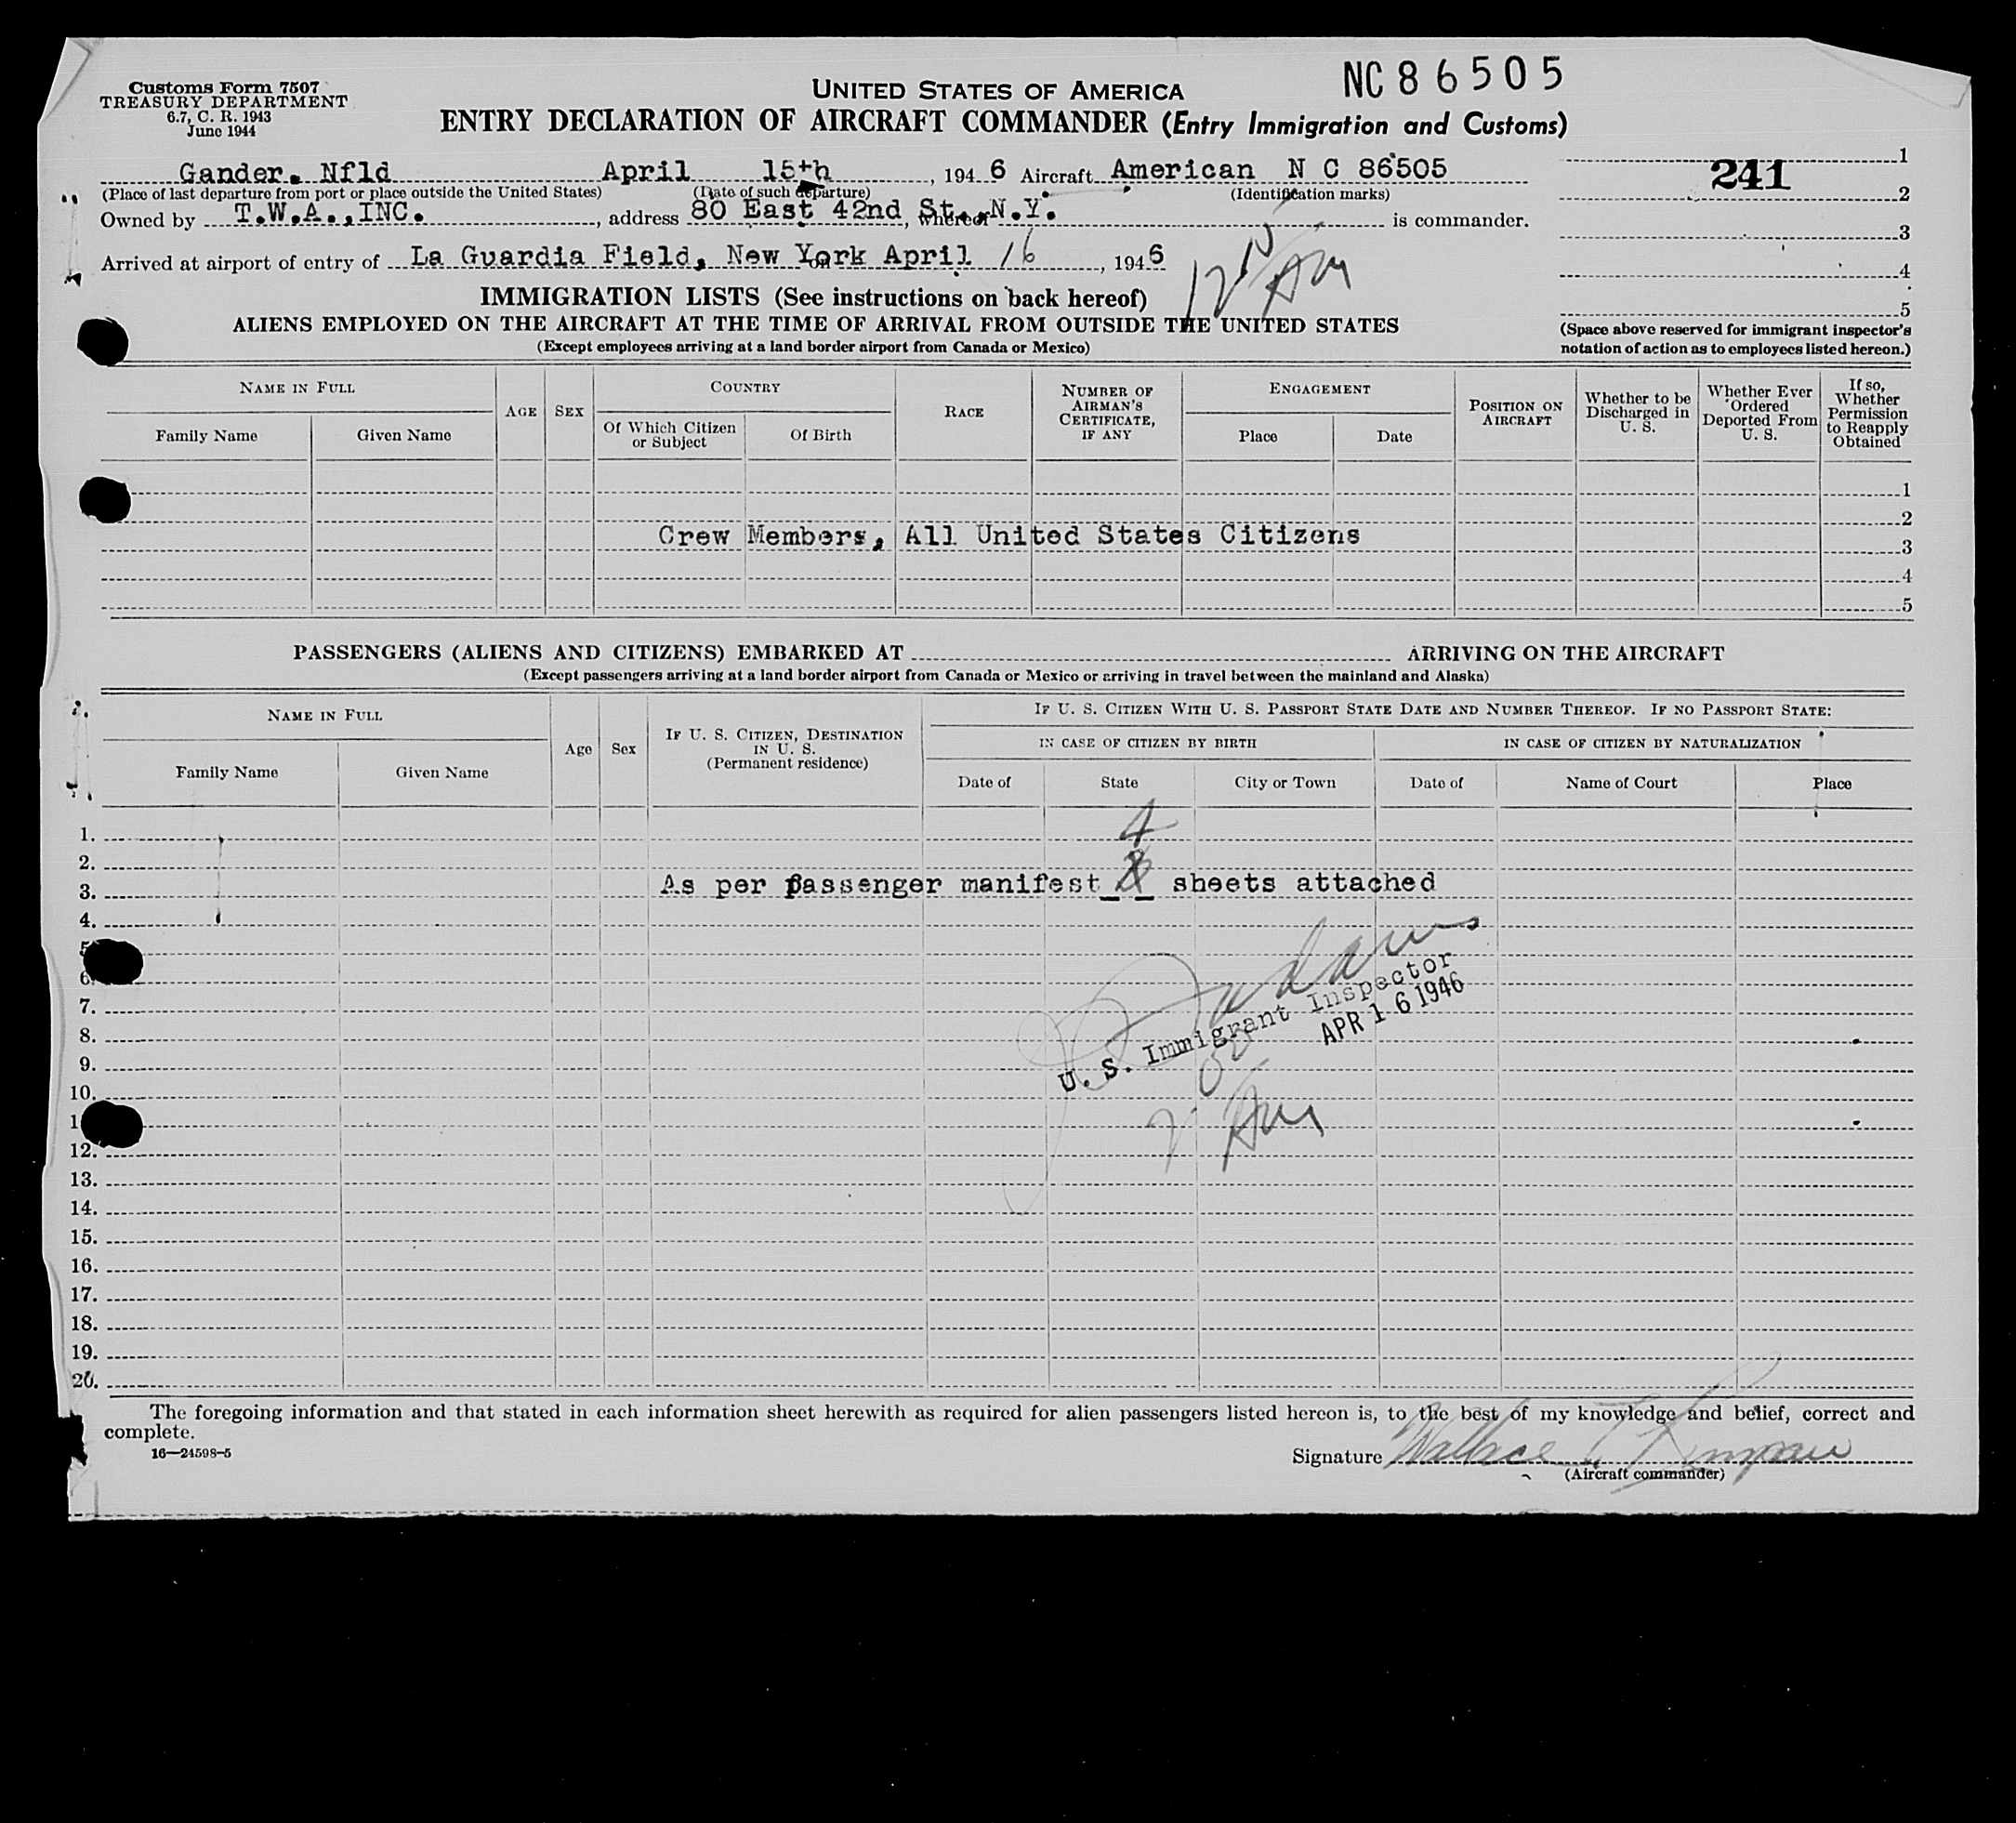 Customs Form 7507
TREASURY DEPARTMENT
6.7, C. R. 1943
June 1944
UNITED STATES OF AMERICA
NC 86505
ENTRY DECLARATION OF AIRCRAFT COMMANDER (Entry Immigration and Customs)
Gander. Nfld April 15th, 1946 Aircraft American N C 86505
(Place of last departure from port or place outside the United States) (Date of such departure) (Identification marks)
Owned by T.W.A.,INC., address 80 East 42nd St., N.Y. , whereof is commander.
Arrived at airport of entry of La Guardia Field, New York on April 16, 1946
AM
241
1
2
3
4
5
(Space above reserved for immigrant inspector's
notation of action as to employees listed hereon.)
IMMIGRATION LISTS (See instructions on back hereof)
ALIENS EMPLOYED ON THE AIRCRAFT AT THE TIME OF ARRIVAL FROM OUTSIDE THE UNITED STATES
(Except employees arriving at a land border airport from Canada or Mexico)
NAME IN FULL
Family Name
Given Name
AGE
SEX
COUNTRY
Of Which Citizen or Subject
Of Birth
RACE
NUMBER OF AIRMAN'S CERTIFICATE, IF ANY
ENGAGEMENT
Place
Date
POSITION ON AIRCRAFT
Whether to be Discharged in U. S.
Whether Ever Ordered Deported From U. S.
If so, Whether Permission to Reapply Obtained
1
2
Crew Members, All United States Citizens
3
4
5
PASSENGERS (ALIENS AND CITIZENS) EMBARKED AT ARRIVING ON THE AIRCRAFT
(Except passengers arriving at a land border airport from Canada or Mexico or arriving in travel between the mainland and Alaska)
NAME IN FULL
Family Name
Given Name
Age
Sex
IF U. S. CITIZEN, DESTINATION IN U. S.
(Permanent residence)
IF U. S. CITIZEN WITH U. S. PASSPORT STATE DATE AND NUMBER THEREOF. IF NO PASSPORT STATE:
IN CASE OF CITIZEN BY BIRTH
IN CASE OF CITIZEN BY NATURALIZATION
Date of
State
City or Town
Date of
Name of Court
Place
1.
4
2.
3. As per passenger manifest sheets attached
4.
5.
6.
7.
U. S. Immigrant Inspector
APR 16 1946
8.
9.
10.
AM
12.
13.
14.
15.
16.
17.
18.
19.
20.
The foregoing information and that stated in each information sheet herewith as required for alien passengers listed hereon is, to the best of my knowledge and belief, correct and
complete.
16—24598-5
Signature Wallace
(Aircraft commander)